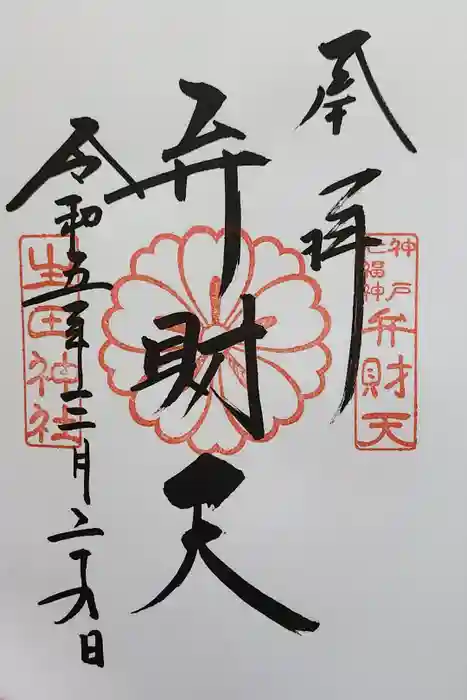 奉拝
神戸
七福神
弁財天
弁財天
令和五年三月二十八日
生田神社